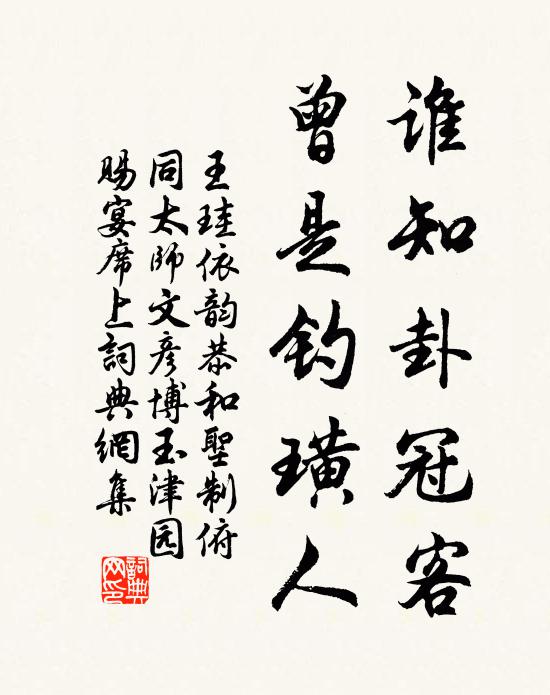 谁知卦冠客
曾是钓璜人
王珪依韵恭和聖制俯
同太師文彦博玉津园
賜宴席上詞典網集
詞典網印